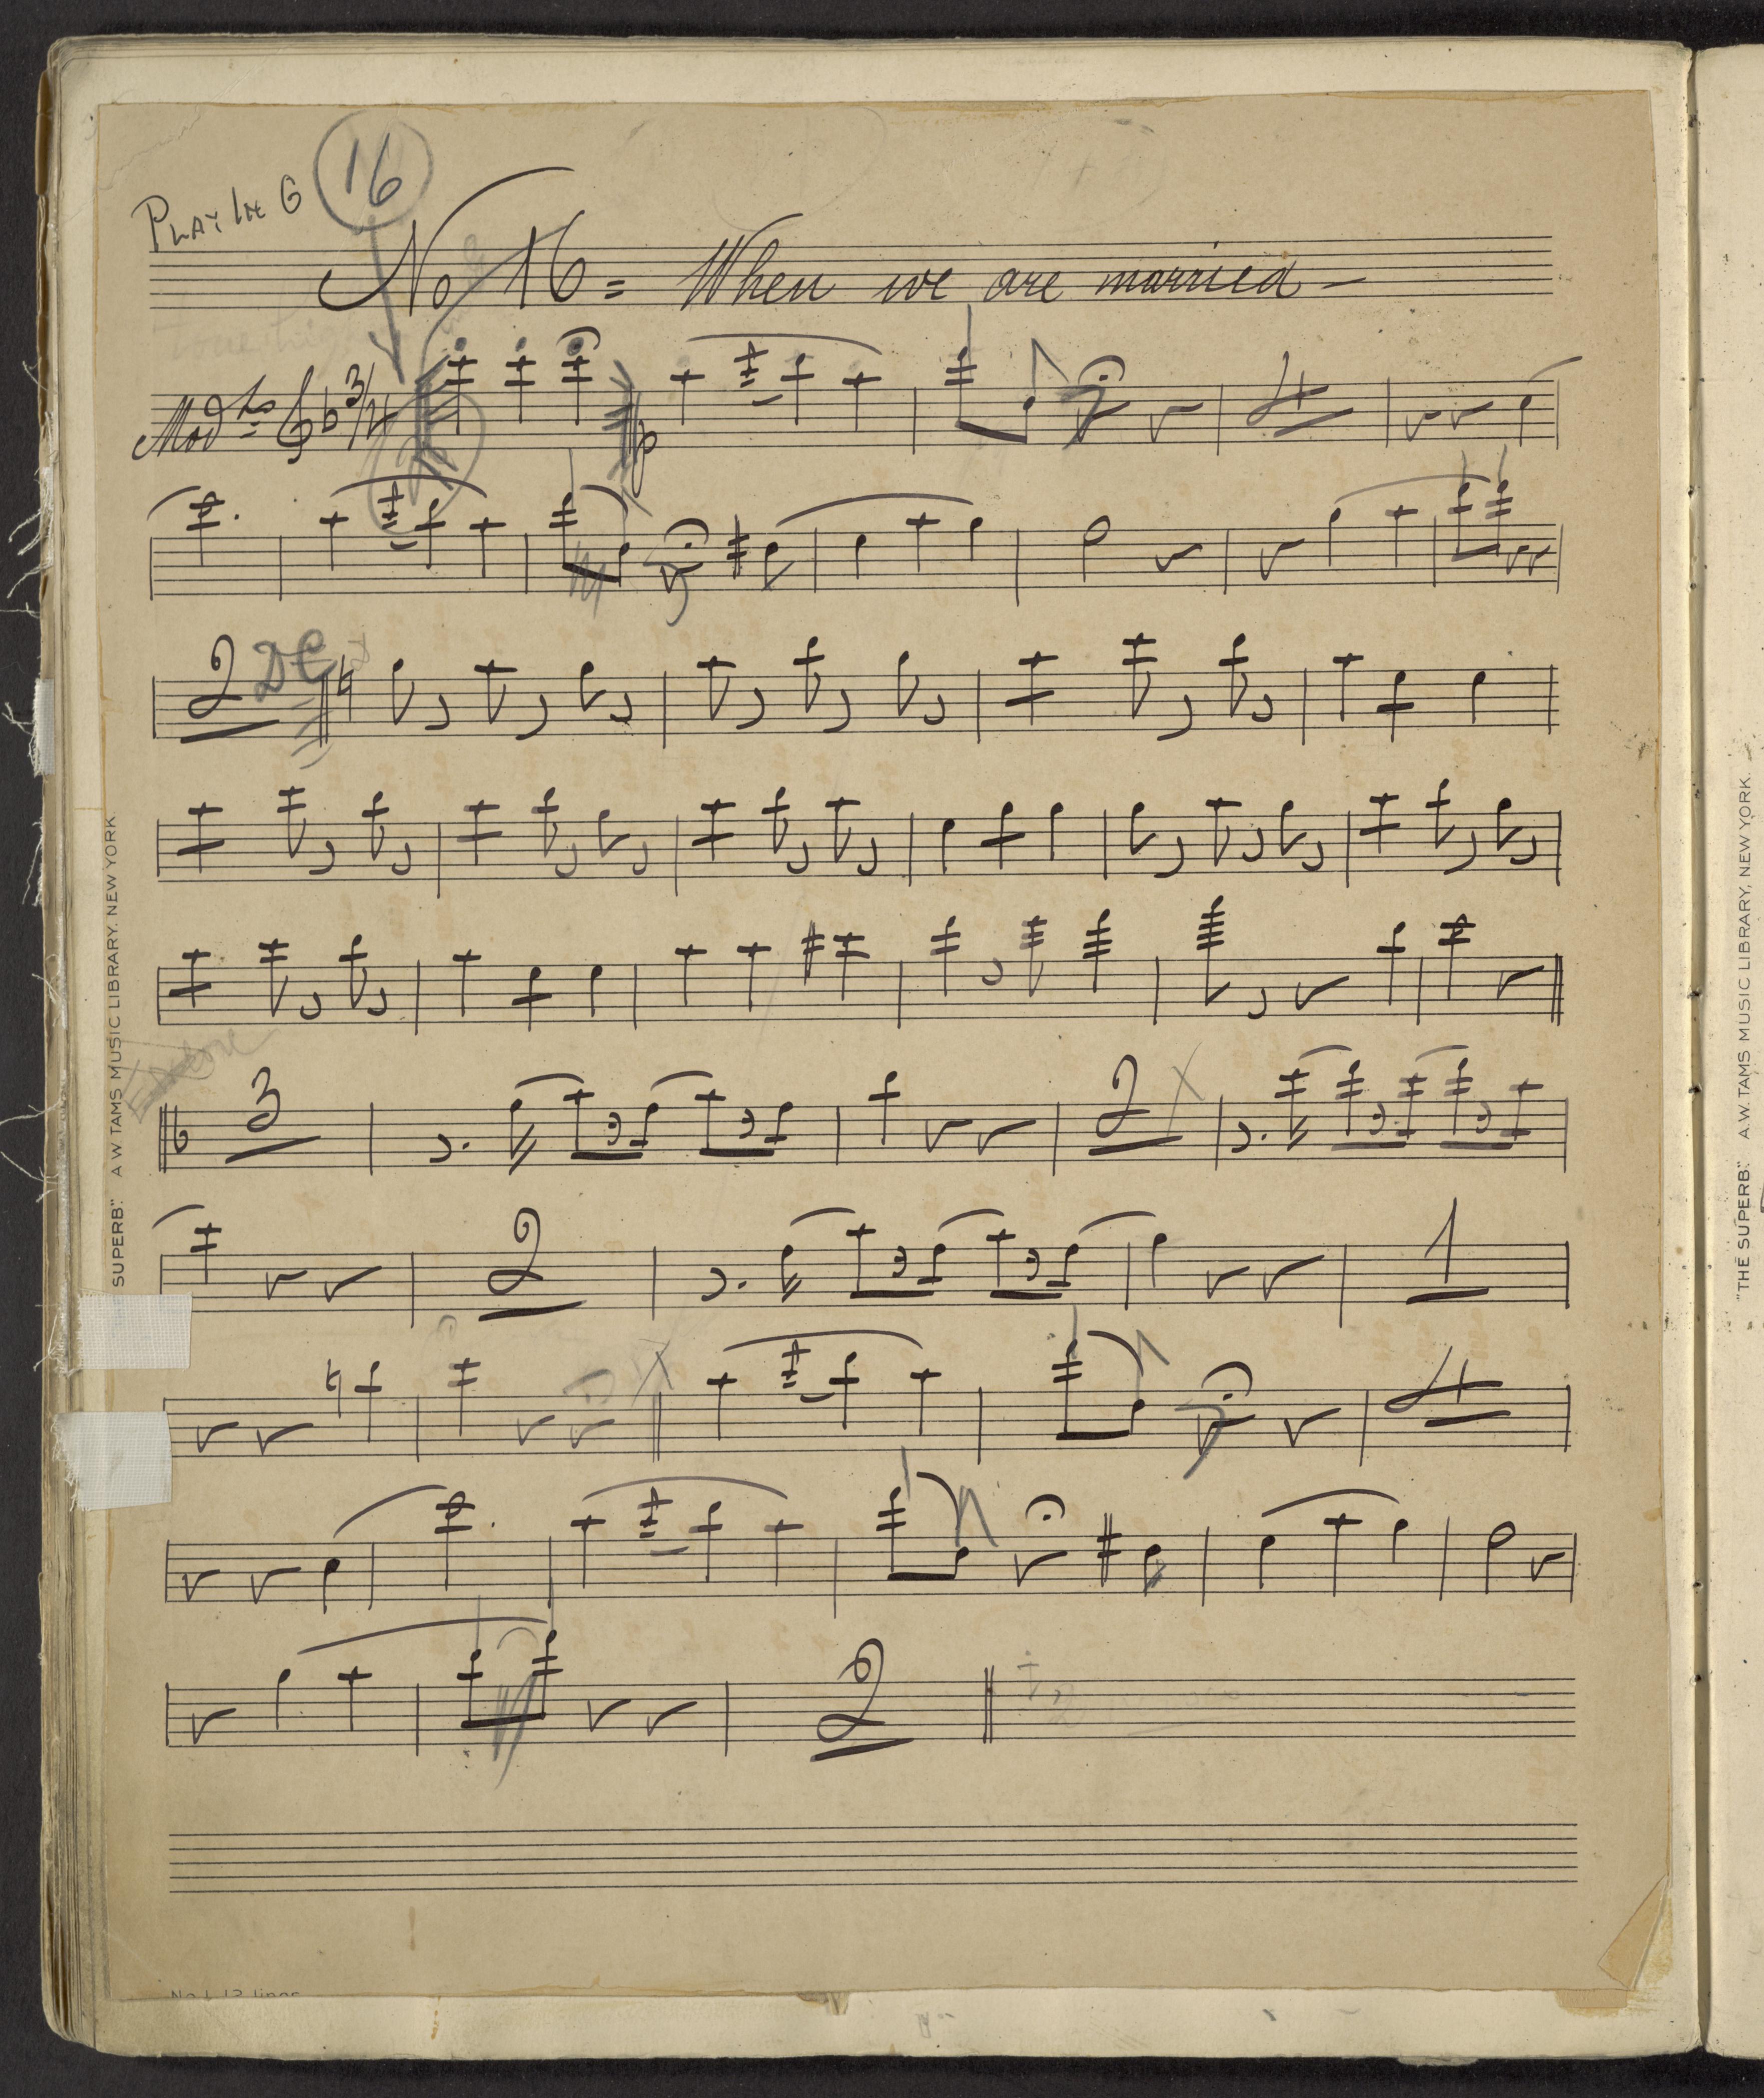 PLAY IN G
16
No 16 = When we are married –
Modto 3/4
p
4
2 DC
3
2
2
1
4
2
"THE SUPERB." A.W. TAMS MUSIC LIBRARY, NEW YORK.
SUPERB." A.W. TAMS MUSIC LIBRARY. NEW YORK.
No 1. 12 lines